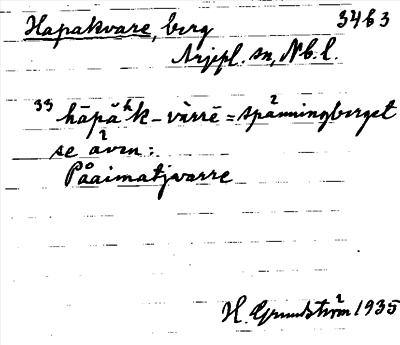 Hapakvare, berg 3463
Arjepl. sn, Nb. l.
33 hāpăʰk-vàrrē = spänningberget
se även:
Pååimatjvarre
H. Grundström 1935